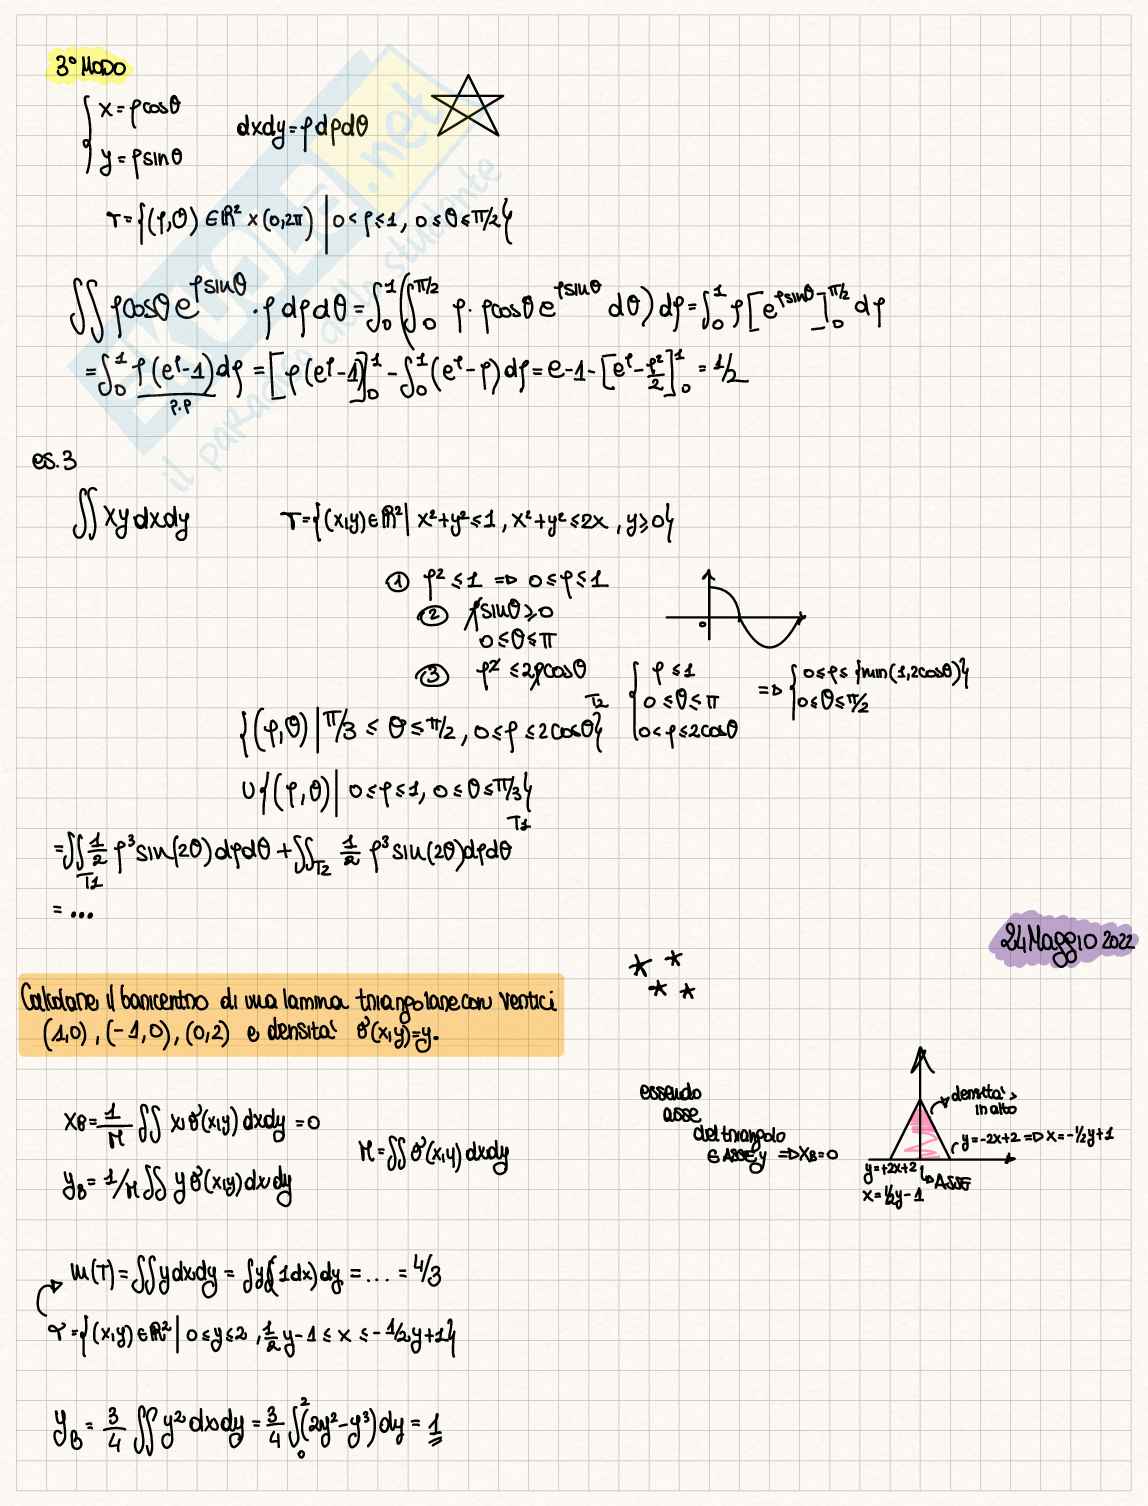 3° MODO
{ x = ρcosθ
y = ρsinθ
dxdy = ρdρdθ
T = {(ρ,θ) ∈ ℝ² × (0,2π) | 0 < ρ ≤ 1, 0 ≤ θ ≤ π/2}
∬ ρcosθ e^{ρsinθ} · ρ dρdθ = ∫₀¹ (∫₀^{π/2} ρ · ρcosθ e^{ρsinθ} dθ) dρ = ∫₀¹ ρ [e^{ρsinθ}]₀^{π/2} dρ
= ∫₀¹ ρ(e^ρ-1) dρ = [ρ(e^ρ-1)]₀¹ - ∫₀¹ (e^ρ-ρ) dρ = e-1-[e^ρ - ρ²/2]₀¹ = 1/2
P.P
es.3
∬ xy dxdy
T = {(x,y) ∈ ℝ² | x²+y² ≤ 1, x²+y² ≤ 2x, y ≥ 0}
① ρ² ≤ 1 => 0 ≤ ρ ≤ 1
② ρsinθ ≥ 0
0 ≤ θ ≤ π
0
③ ρ² ≤ 2ρcosθ
{ ρ ≤ 1
0 ≤ θ ≤ π
0 < ρ ≤ 2cosθ
=> { 0 ≤ ρ ≤ {min(1,2cosθ)}
0 ≤ θ ≤ π/2
{(ρ,θ) | π/3 ≤ θ ≤ π/2, 0 ≤ ρ ≤ 2cosθ} T2
∪ {(ρ,θ) | 0 ≤ ρ ≤ 1, 0 ≤ θ ≤ π/3} T1
= ∬_{T1} 1/2 ρ³ sin(2θ) dρdθ + ∬_{T2} 1/2 ρ³ sin(2θ) dρdθ
= ...
24 Maggio 2022
Calcolare il baricentro di una lamina triangolare con vertici
(1,0), (-1,0), (0,2) e densità σ(x,y)=y.
x_B = 1/M ∬ x σ(x,y) dxdy = 0
M = ∬ σ(x,y) dxdy
y_B = 1/M ∬ y σ(x,y) dxdy
essendo
asse
del triangolo
∈ ASSE y => x_B = 0
densità >
in alto
y = -2x+2 => x = -1/2y+1
y = +2x+2
x = 1/2y-1
ASSE
m(T) = ∬ y dxdy = ∫y(∫1dx)dy = ... = 4/3
T = {(x,y) ∈ ℝ² | 0 ≤ y ≤ 2, 1/2 y-1 ≤ x ≤ -1/2y+1}
y_B = 3/4 ∬ y² dxdy = 3/4 ∫₀² (2y²-y³) dy = 1
SKUOLA.net
il paradiso dello studente